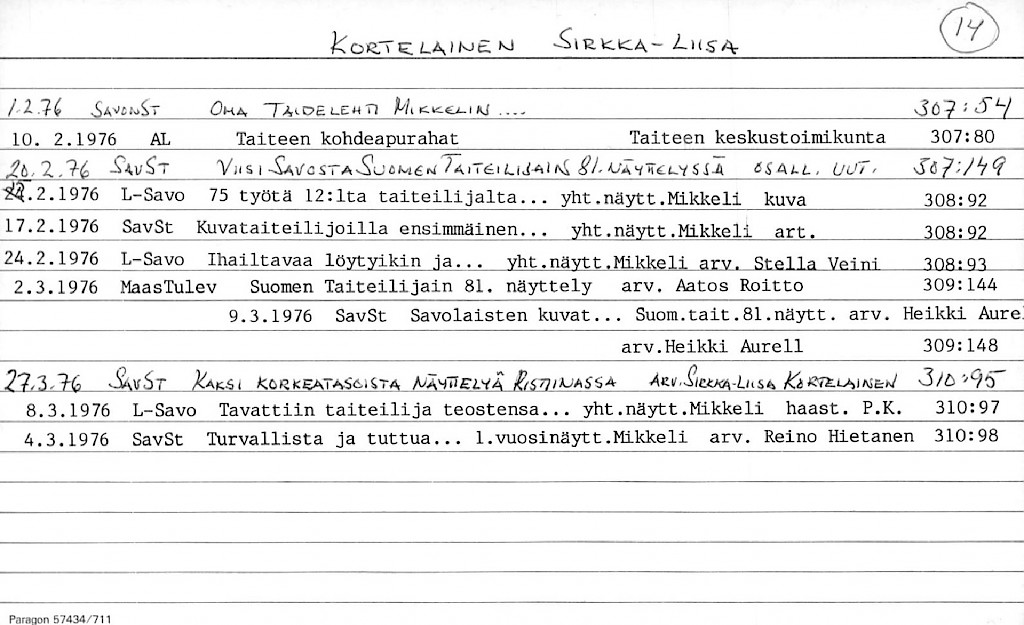 14
KORTELAINEN SIRKKA-LIISA
1.2.76 SAVONST OMA TAIDELEHTI MIKKELIN .... 307:54
10. 2.1976 AL Taiteen kohdeapurahat Taiteen keskustoimikunta 307:80
20.2.76 SAVST VIISI SAVOSTA SUOMEN TAITEILIJAIN 81. NÄYTTELYSSÄ OSALL. UUT. 307:149
22.2.1976 L-Savo 75 työtä 12:lta taiteilijalta... yht.näytt.Mikkeli kuva 308:92
17.2.1976 SavSt Kuvataiteilijoilla ensimmäinen... yht.näytt.Mikkeli art. 308:92
24.2.1976 L-Savo Ihailtavaa löytyikin ja... yht.näytt.Mikkeli arv. Stella Veini 308:93
2.3.1976 MaasTulev Suomen Taiteilijain 81. näyttely arv. Aatos Roitto 309:144
9.3.1976 SavSt Savolaisten kuvat... Suom.tait.81.näytt. arv. Heikki Aure
arv.Heikki Aurell 309:148
27.3.76 SAVST KAKSI KORKEATASOISTA NÄYTTELYÄ RISTIINASSA ARV. SIRKKA-LIISA KORTELAINEN 310:95
8.3.1976 L-Savo Tavattiin taiteilija teostensa... yht.näytt.Mikkeli haast. P.K. 310:97
4.3.1976 SavSt Turvallista ja tuttua... 1.vuosinäytt.Mikkeli arv. Reino Hietanen 310:98
Paragon 57434/711